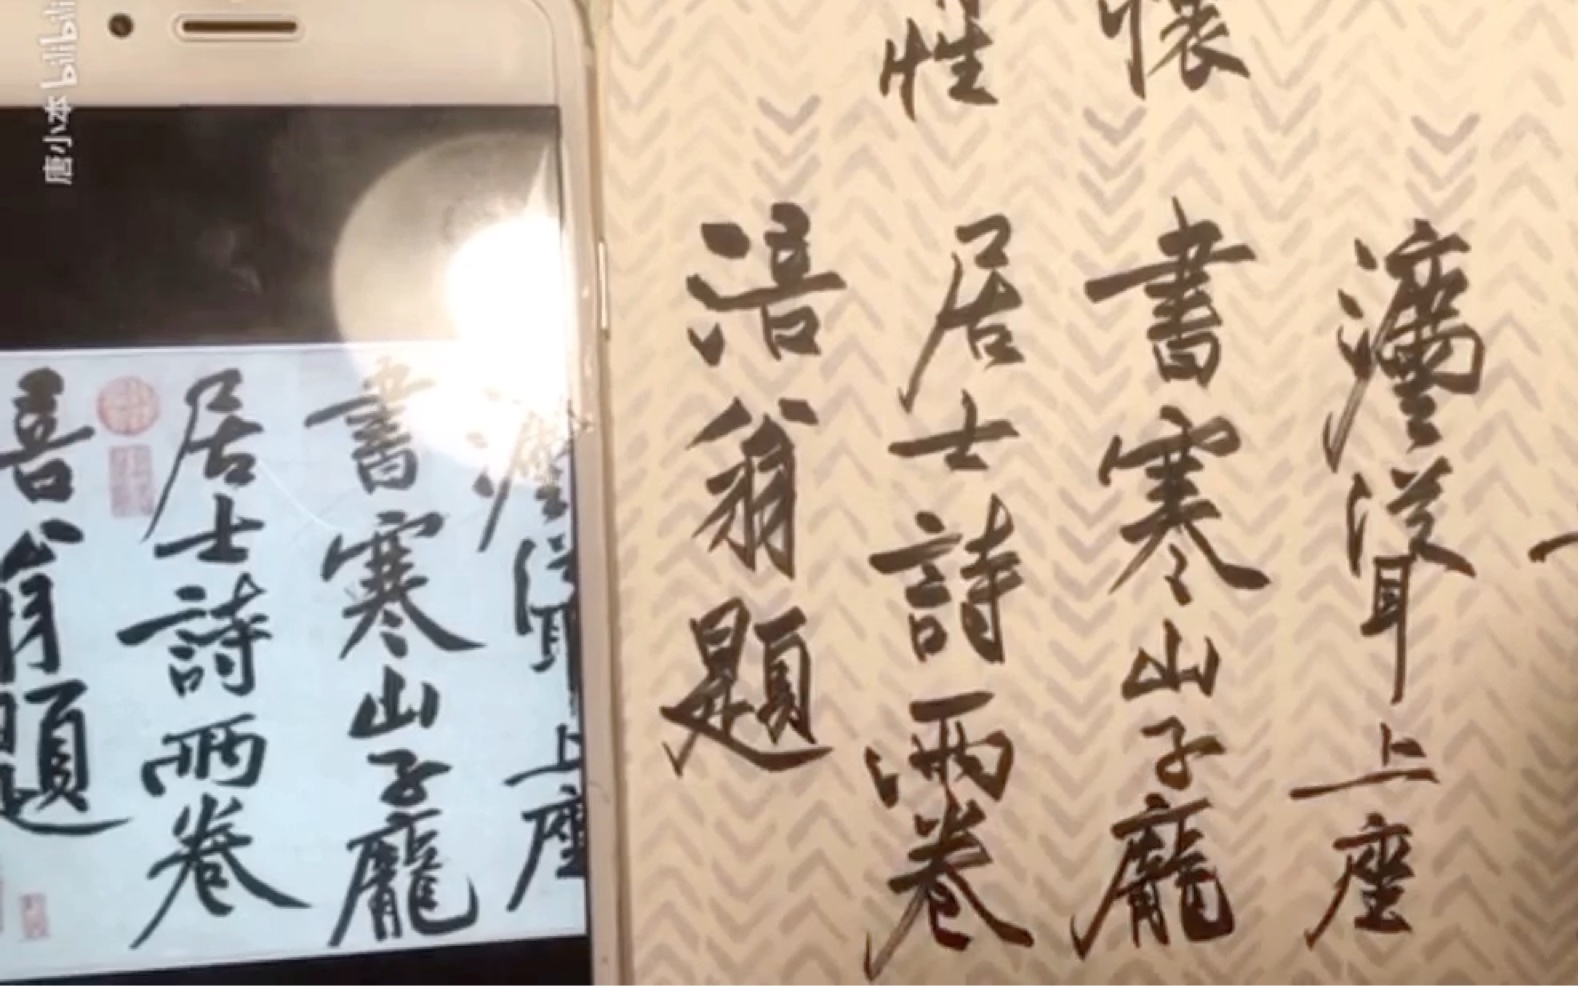 灋聳上座
懷
書寒山子龐
性
居士詩兩卷
涪翁題
灋聳上座
書寒山子龐
居士詩兩卷
翁題
唐小本 bilibili